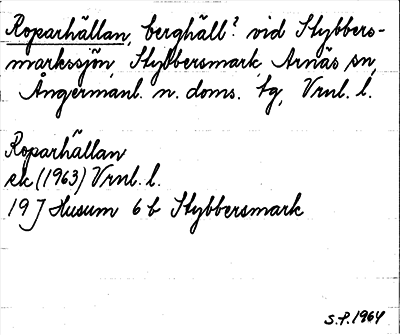 Roparhällan, berghäll? vid Stybbers-
markssjön, Stybbersmark, Arnäs sn,
Ångermanl. n. doms. tg, Vrnl. l.
Roparhällan
ek (1963) Vrnl. l.
19 J Husum 6 b Stybbersmark
S.P. 1964